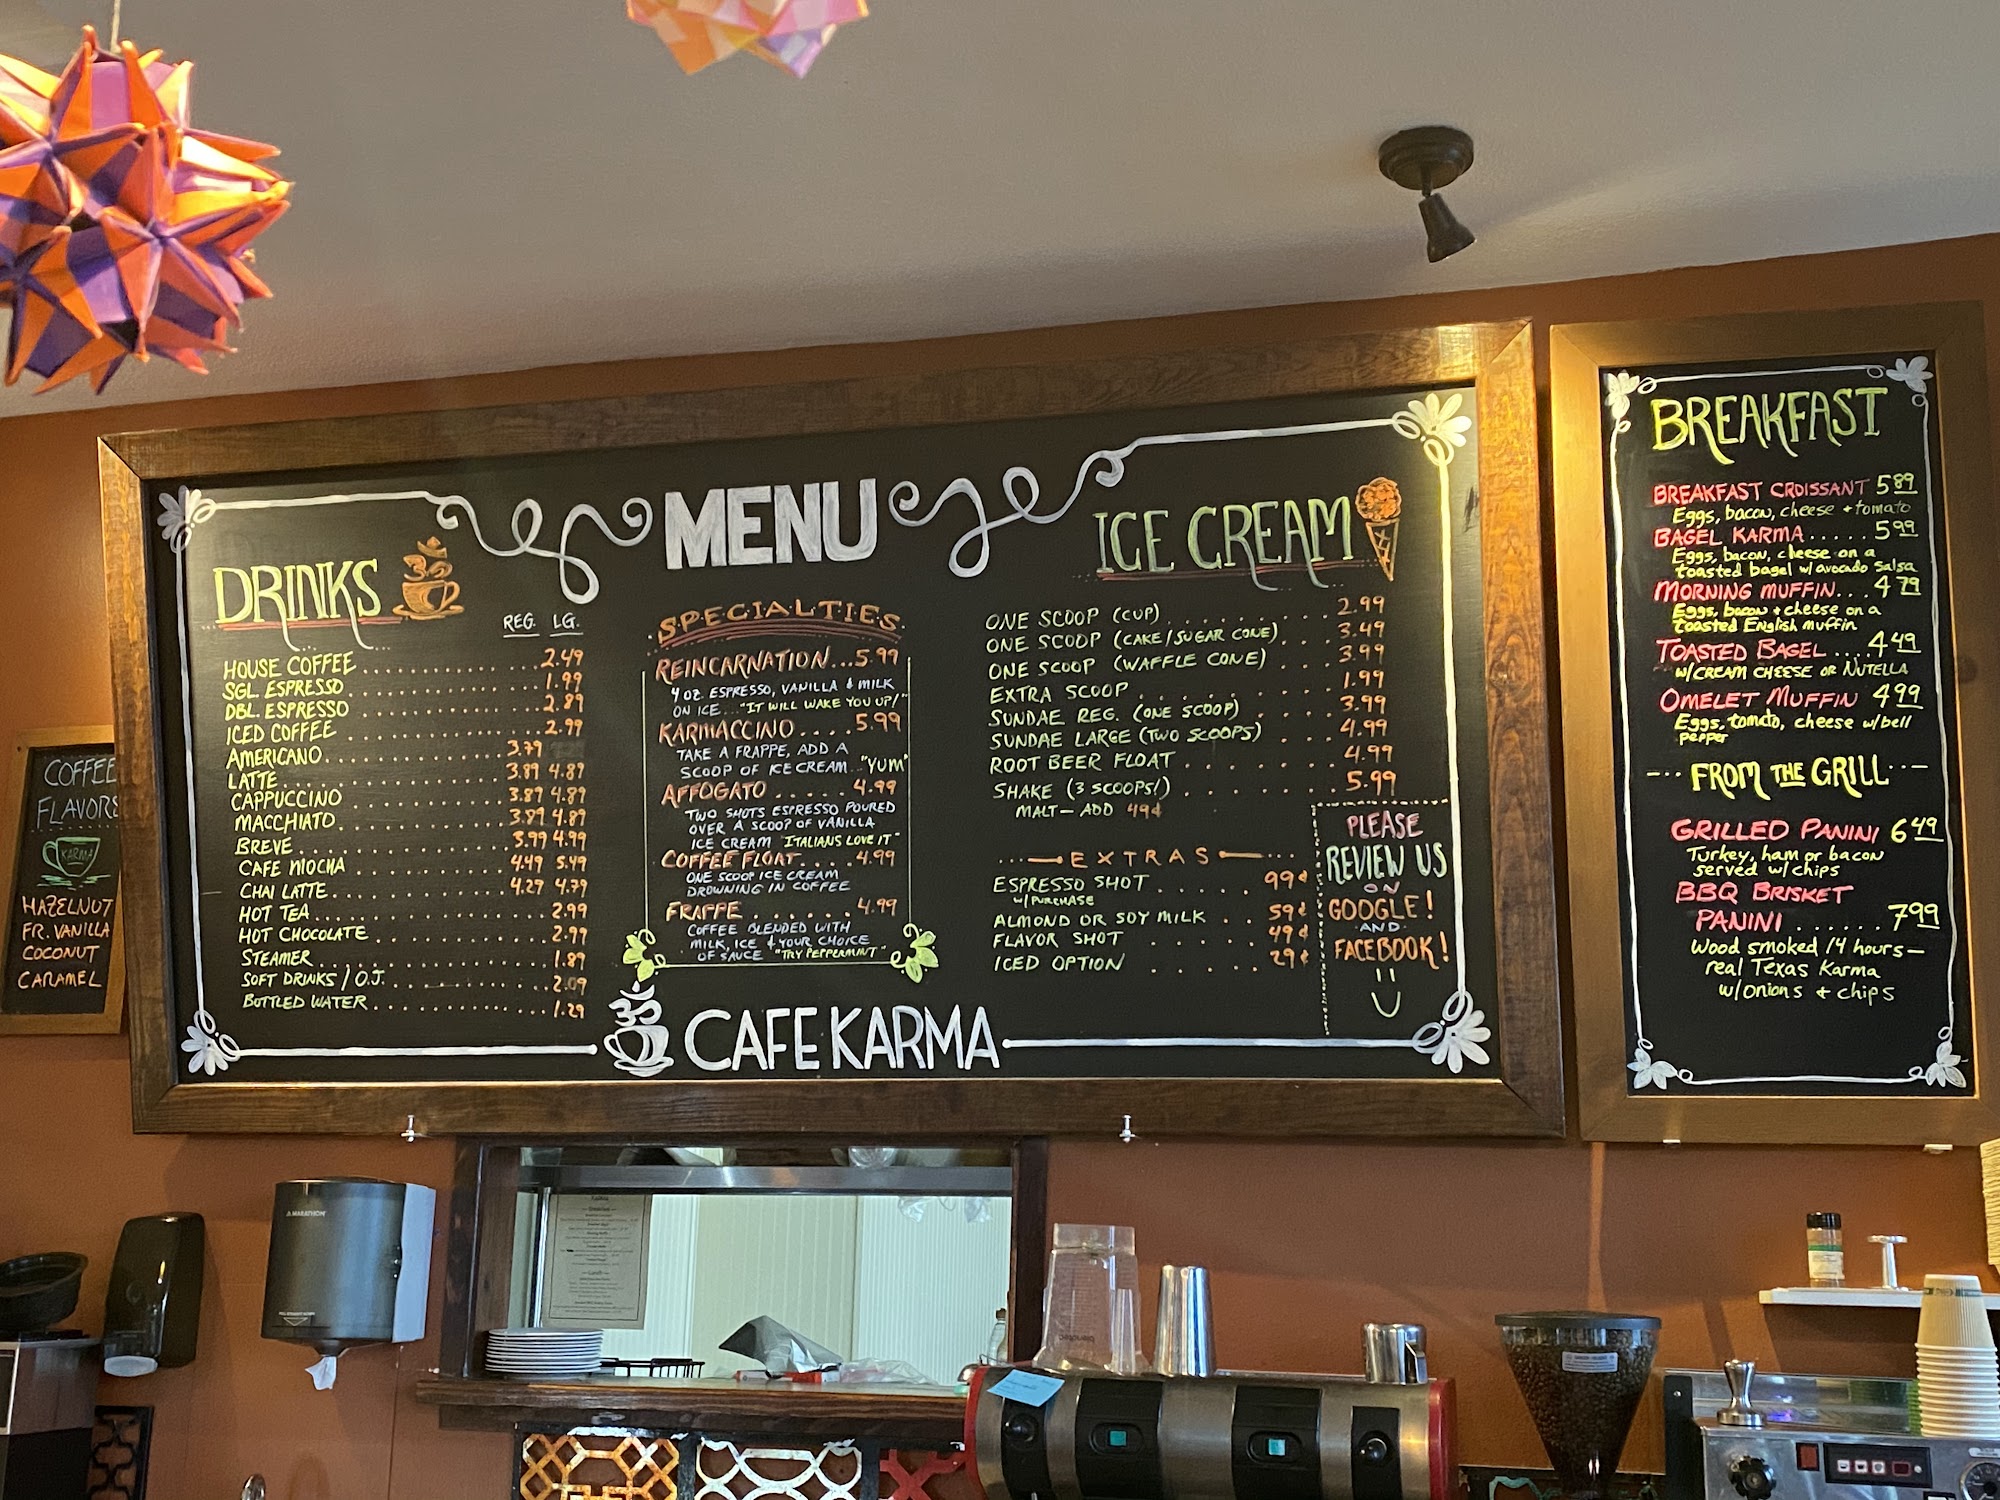 MENU
DRINKS
REG. LG.
HOUSE COFFEE 2.49
SGL ESPRESSO 1.99
DBL. ESPRESSO 2.89
ICED COFFEE 2.99
AMERICANO 3.79
LATTE 3.89 4.89
CAPPUCCINO 3.89 4.89
MACCHIATO 3.89 4.89
BREVE 3.99 4.99
CAFE MOCHA 4.49 5.49
CHAI LATTE 4.29 4.79
HOT TEA 2.99
HOT CHOCOLATE 2.99
STEAMER 1.89
SOFT DRINKS / O.J. 2.09
BOTTLED WATER 1.29
SPECIALTIES
REINCARNATION...5.99
4 OZ. ESPRESSO, VANILLA & MILK
ON ICE... "IT WILL WAKE YOU UP!"
KARMACCINO....5.99
TAKE A FRAPPE, ADD A
SCOOP OF ICE CREAM.. "YUM"
AFFOGATO.....4.99
TWO SHOTS ESPRESSO POURED
OVER A SCOOP OF VANILLA
ICE CREAM "ITALIANS LOVE IT"
COFFEE FLOAT....4.99
ONE SCOOP ICE CREAM
DROWNING IN COFFEE
FRAPPE......4.99
COFFEE BLENDED WITH
MILK, ICE & YOUR CHOICE
OF SAUCE "TRY PEPPERMINT"
CAFE KARMA
ICE CREAM
ONE SCOOP (CUP) 2.99
ONE SCOOP (CAKE/SUGAR CONE) 3.49
ONE SCOOP (WAFFLE CONE) 3.99
EXTRA SCOOP 1.99
SUNDAE REG. (ONE SCOOP) 3.99
SUNDAE LARGE (TWO SCOOPS) 4.99
ROOT BEER FLOAT 4.99
SHAKE (3 SCOOPS!) 5.99
MALT — ADD 49¢
EXTRAS
ESPRESSO SHOT 99¢
W/ PURCHASE
ALMOND OR SOY MILK 59¢
FLAVOR SHOT 49¢
ICED OPTION 29¢
PLEASE
REVIEW US
ON
GOOGLE!
AND
FACEBOOK!
BREAKFAST
BREAKFAST CROISSANT 5.89
Eggs, bacon, cheese + tomato
BAGEL KARMA.....5.99
Eggs, bacon, cheese on a
toasted bagel w/avocado salsa
MORNING MUFFIN...4.79
Eggs, bacon + cheese on a
toasted English muffin
TOASTED BAGEL....4.49
W/CREAM CHEESE OR NUTELLA
OMELET MUFFIN 4.99
Eggs, tomato, cheese w/bell
pepper
FROM THE GRILL
GRILLED PANINI 6.49
Turkey, ham or bacon
served w/chips
BBQ BRISKET
PANINI......7.99
Wood smoked 14 hours—
real Texas Karma
w/onions + chips
COFFEE
FLAVORS
KARMA
HAZELNUT
FR. VANILLA
COCONUT
CARAMEL
MARATHON
blendtec